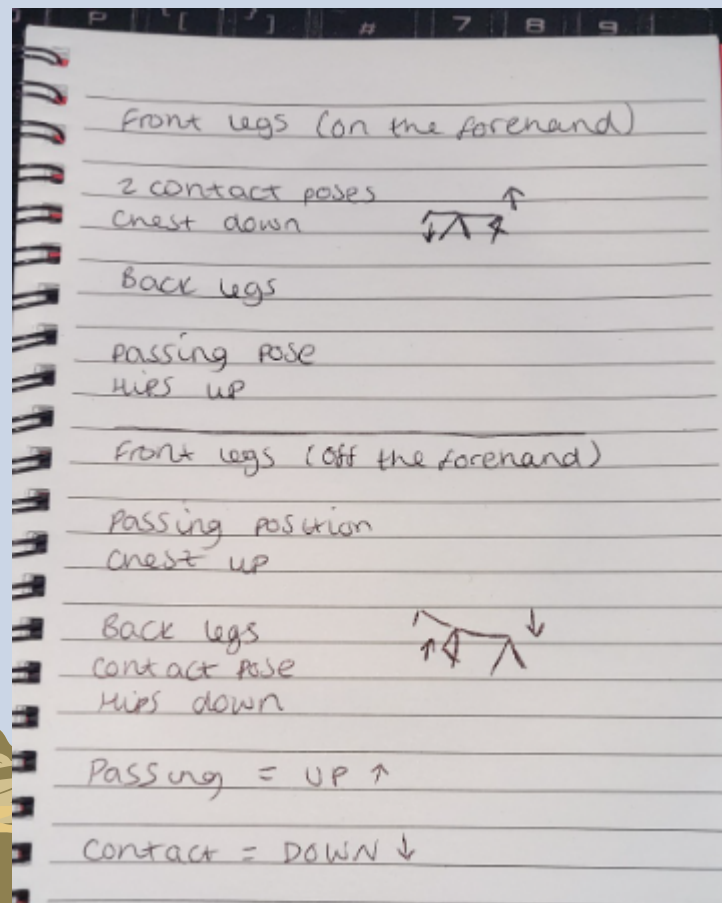 P [ ] # 7 8 9
Front legs (on the forehand)
2 contact poses ↑
Chest down ↓
Back legs
passing pose
Hips up
Front legs (off the forehand)
Passing position
Chest up
Back legs ↓
contact pose ↑
Hips down
Passing = UP ↑
Contact = DOWN ↓